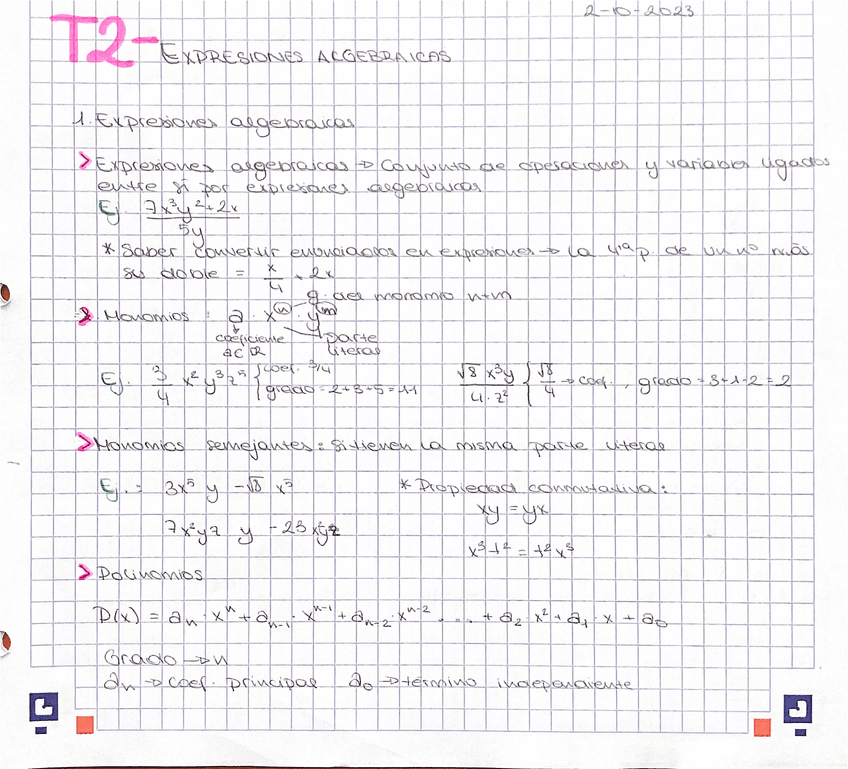 2-10-2023
T2- EXPRESIONES ALGEBRAICAS
1. Expresiones algebraicas
> Expresiones algebraicas → Conjunto de operaciones y variables ligados
entre sí por expresiones algebraicas
Ej (7x³y² + 2x) / 5y
* Saber convertir enunciados en expresiones → La 4ª p. de un nº más
su doble = x/4 + 2x
g. del monomio n+m
> Monomios : a · xⁿ · yᵐ
coeficiente parte
a ∈ ℝ literal
Ej. 3/4 x² y³ z⁵ { coef. 3/4 √8 x³y / 4·z² { √8/4 → coef., grado = 3+1-2 = 2
grado = 2+3+5 = 11
> Monomios semejantes: si tienen la misma parte literal
Ej. : 3x⁵ y -√8 x⁵ * Propiedad conmutativa:
xy = yx
7x²yz y -23 x²yz
x³t² = t²x³
> Polinomios
P(x) = aₙ · xⁿ + aₙ₋₁ · xⁿ⁻¹ + aₙ₋₂ · xⁿ⁻² . ... + a₂ · x² + a₁ · x + a₀
Grado → n
aₙ → coef. principal a₀ → término independiente